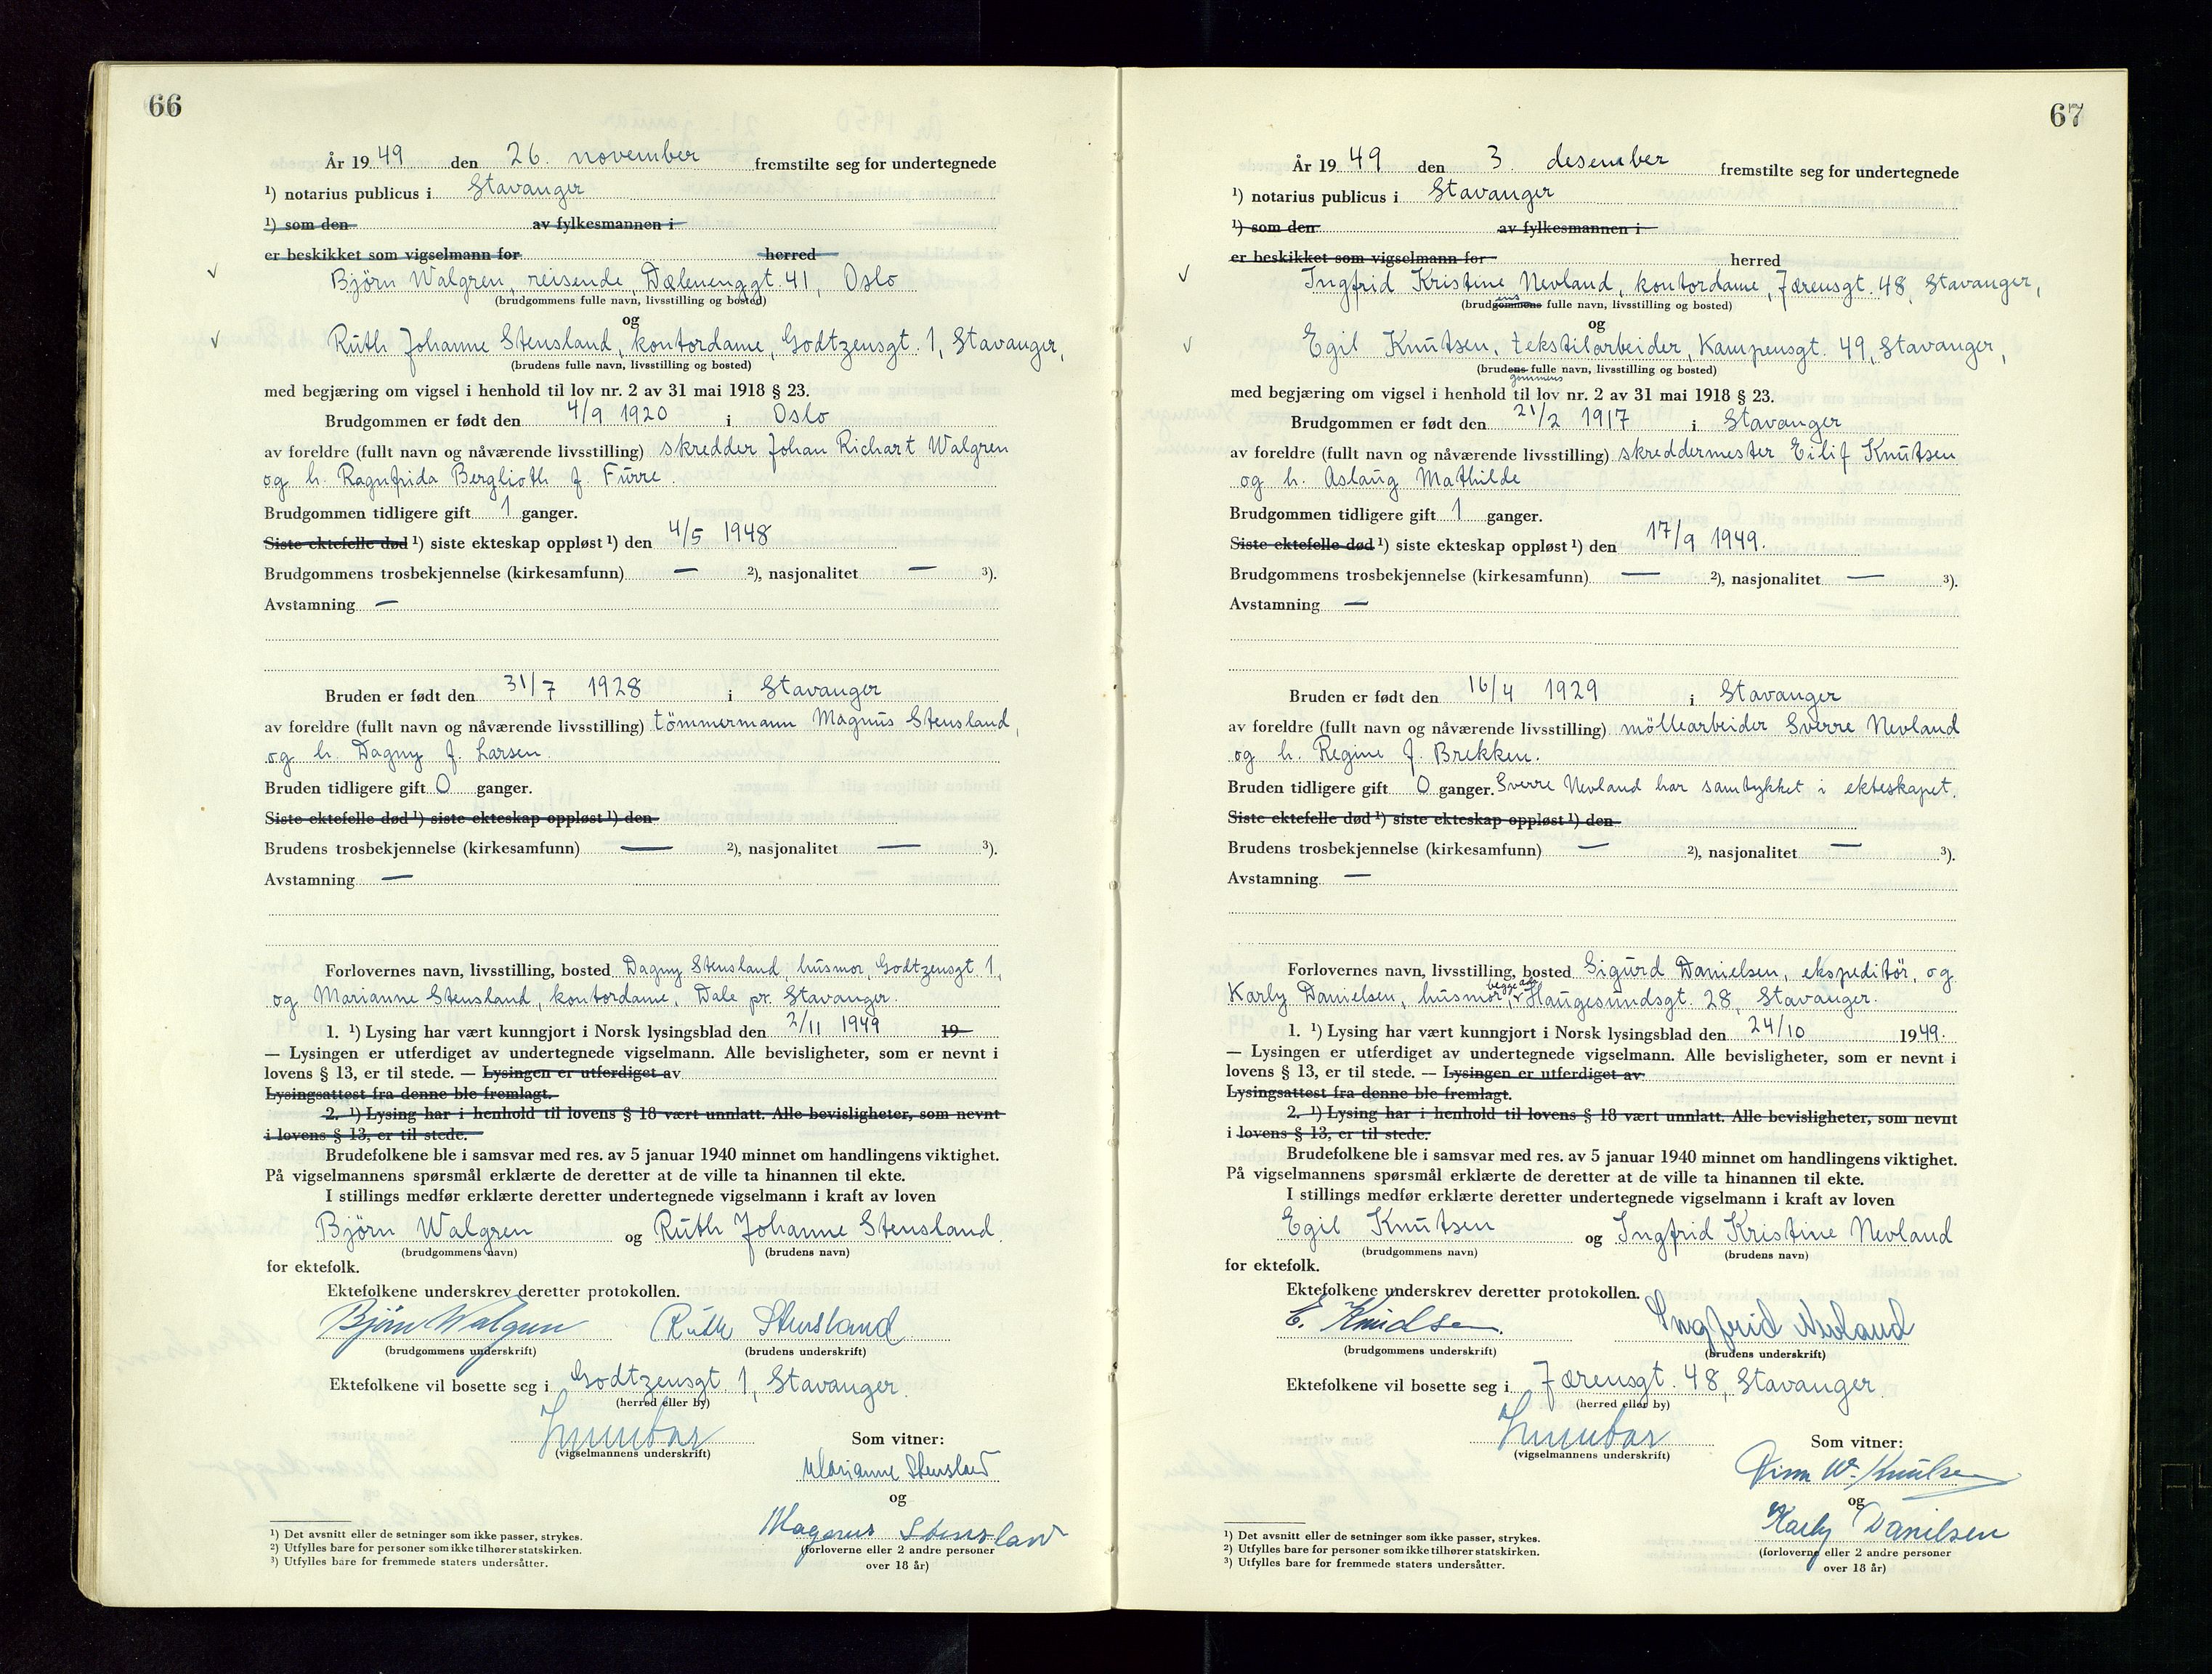 66
År 1949 den 26. november fremstilte seg for undertegnede
¹) notarius publicus i Stavanger
¹) som den av fylkesmannen i
er beskikket som vigselmann for herred
√ Björn Walgren, reisende, Dælenenggt. 41, Oslo
(brudgommens fulle navn, livsstilling og bosted)
og
√ Ruth Johanne Stensland, kontordame, Godtzensgt. 1, Stavanger,
(brudens fulle navn, livsstilling og bosted)
med begjæring om vigsel i henhold til lov nr. 2 av 31 mai 1918 § 23.
Brudgommen er født den 4/9 1920 i Oslo
av foreldre (fullt navn og nåværende livsstilling) skredder Johan Richart Walgren
og h. Ragnfrida Berglioth f. Furre.
Brudgommen tidligere gift 1 ganger.
Siste ektefelle død ¹) siste ekteskap oppløst ¹) den 4/5 1948
Brudgommens trosbekjennelse (kirkesamfunn) — ²), nasjonalitet — ³).
Avstamning —
Bruden er født den 31/7 1928 i Stavanger
av foreldre (fullt navn og nåværende livsstilling) tömmermann Magnus Stensland,
og h. Dagny f. Larsen.
Bruden tidligere gift 0 ganger.
Siste ektefelle død ¹) siste ekteskap oppløst ¹) den
Brudens trosbekjennelse (kirkesamfunn) — ²), nasjonalitet — ³).
Avstamning —
Forlovernes navn, livsstilling, bosted Dagny Stensland, husmor, Godtzensgt. 1,
og Marianne Stensland, kontordame, Dale pr. Stavanger.
1. ¹) Lysing har vært kunngjort i Norsk lysingsblad den 2/11 1949 19
— Lysingen er utferdiget av undertegnede vigselmann. Alle bevisligheter, som er nevnt i
lovens § 13, er til stede. — Lysingen er utferdiget av
Lysingsattest fra denne ble fremlagt.
2. ¹) Lysing har i henhold til lovens § 18 vært unnlatt. Alle bevisligheter, som nevnt
i lovens § 13, er til stede.
Brudefolkene ble i samsvar med res. av 5 januar 1940 minnet om handlingens viktighet.
På vigselmannens spørsmål erklærte de deretter at de ville ta hinannen til ekte.
I stillings medfør erklærte deretter undertegnede vigselmann i kraft av loven
Björn Walgren og Ruth Johanne Stensland.
(brudgommens navn) (brudens navn)
for ektefolk.
Ektefolkene underskrev deretter protokollen.
Björn Walgren Ruth Stensland
(brudgommens underskrift) (brudens underskrift)
Ektefolkene vil bosette seg i Godtzensgt. 1, Stavanger.
(herred eller by)
(vigselmannens underskrift)
Som vitner:
Marianne Stensland
og
Magnus Stensland
(forloverne eller 2 andre personer
over 18 år)
¹) Det avsnitt eller de setninger som ikke passer, strykes.
²) Utfylles bare for personer som ikke tilhører statskirken.
³) Utfylles bare for fremmede staters undersåtter.
67
År 1949 den 3. desember fremstilte seg for undertegnede
¹) notarius publicus i Stavanger
¹) som den av fylkesmannen i
er beskikket som vigselmann for herred
√ Ingfrid Kristine Nevland, kontordame, Jærensgt. 48, Stavanger,
(brudgommens ens fulle navn, livsstilling og bosted)
og
√ Egil Knutsen, tekstilarbeider, Kampensgt. 49, Stavanger,
(brudens fulle navn, livsstilling og bosted)
gommens
med begjæring om vigsel i henhold til lov nr. 2 av 31 mai 1918 § 23.
Brudgommen er født den 21/2 1917 i Stavanger
av foreldre (fullt navn og nåværende livsstilling) skreddermester Eilif Knutsen
og h. Aslaug Mathilde
Brudgommen tidligere gift 1 ganger.
Siste ektefelle død ¹) siste ekteskap oppløst ¹) den 17/9 1949.
Brudgommens trosbekjennelse (kirkesamfunn) — ²), nasjonalitet — ³).
Avstamning —
Bruden er født den 16/4 1929 i Stavanger
av foreldre (fullt navn og nåværende livsstilling) möllearbeider Sverre Nevland
og h. Regine f. Brekken.
Bruden tidligere gift 0 ganger. Sverre Nevland har samtykket i ekteskapet.
Siste ektefelle død ¹) siste ekteskap oppløst ¹) den
Brudens trosbekjennelse (kirkesamfunn) — ²), nasjonalitet — ³).
Avstamning —
Forlovernes navn, livsstilling, bosted Sigurd Danielsen, ekspeditör, og
Karly Danielsen, husmor, begge adr. Haugesundsgt. 28, Stavanger.
1. ¹) Lysing har vært kunngjort i Norsk lysingsblad den 24/10 1949.
— Lysingen er utferdiget av undertegnede vigselmann. Alle bevisligheter, som er nevnt i
lovens § 13, er til stede. — Lysingen er utferdiget av
Lysingsattest fra denne ble fremlagt.
2. ¹) Lysing har i henhold til lovens § 18 vært unnlatt. Alle bevisligheter, som nevnt
i lovens § 13, er til stede.
Brudefolkene ble i samsvar med res. av 5 januar 1940 minnet om handlingens viktighet.
På vigselmannens spørsmål erklærte de deretter at de ville ta hinannen til ekte.
I stillings medfør erklærte deretter undertegnede vigselmann i kraft av loven
Egil Knutsen og Ingfrid Kristine Nevland
(brudgommens navn) (brudens navn)
for ektefolk.
Ektefolkene underskrev deretter protokollen.
E. Knudsen. Ingfrid Nevland
(brudgommens underskrift) (brudens underskrift)
Ektefolkene vil bosette seg i Jærensgt. 48, Stavanger.
(herred eller by)
(vigselmannens underskrift)
Som vitner:
W. Knutsen
og
Karly Danielsen
(forloverne eller 2 andre personer
over 18 år)
¹) Det avsnitt eller de setninger som ikke passer, strykes.
²) Utfylles bare for personer som ikke tilhører statskirken.
³) Utfylles bare for fremmede staters undersåtter.